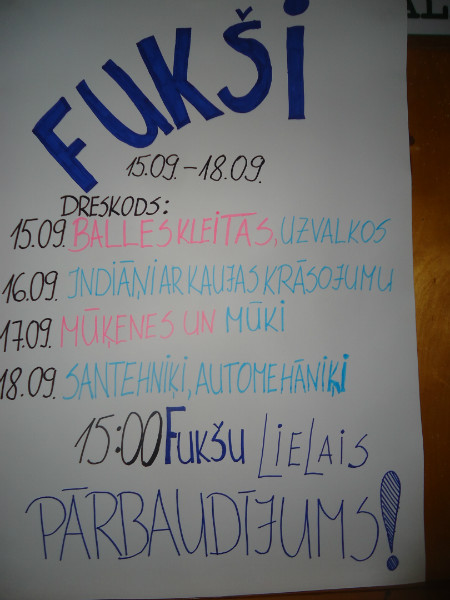 FUKŠI
15.09.-18.09.
DRESKODS:
15.09. BALLES KLEITAS, UZVALKOS
16.09. INDIĀŅI AR KAUJAS KRĀSOJUMU
17.09. MŪĶENES UN MŪKI
18.09. SANTEHNIĶI, AUTOMEHĀNIĶI
15:00 FUKŠU LIELAIS
PĀRBAUDĪJUMS!